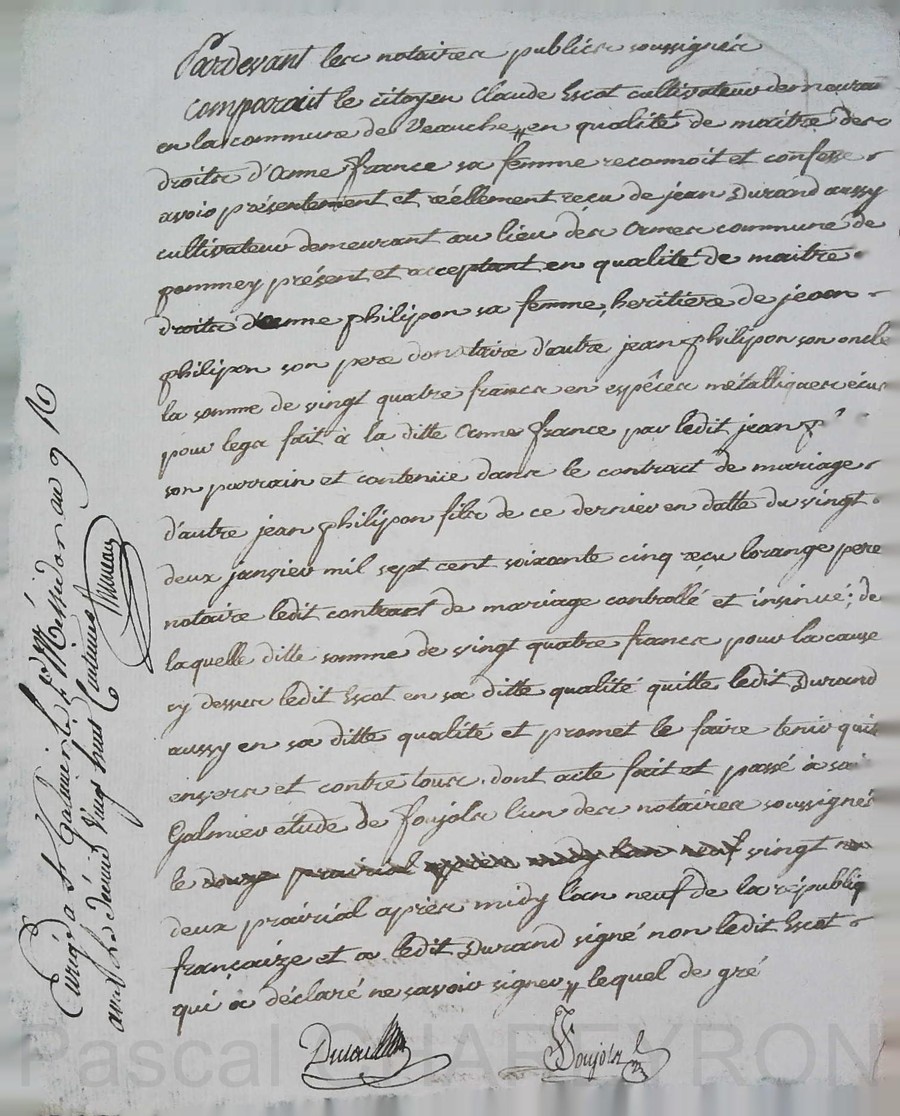 Pardevant les notaires publics soussignés
comparait le citoyen Claude Escot cultivateur demeuran
en la commune de Veauche,, en qualité de maitre des
droits d'anne france sa femme reconnoit et confesse
avoir présentement et réellement reçu de jean Durand aussy
cultivateur demeurant au lieu des ormes commune de
pommey présent et acceptant en qualité de maitre
droits d'anne philipon sa femme, heritière de jean
philipon son pere donataire d'autre jean philipon son oncle
la somme de vingt quatre francs en espêces métalliques écus
pour legs fait à la ditte anne france par ledit jean p.
son parrain et contenüe dans le contract de mariage
d'autre jean philipon fils de ce dernier en datte du vingt
deux janvier mil sept cent soixante cinq reçu lorange pere
notaire ledit contract de mariage controllé et insinué; de
laquelle ditte somme de vingt quatre francs pour la cause
cy dessus ledit Escot en sa ditte qualité quitte ledit Durand
aussy en sa ditte qualité et promet le faire tenir quit
envers et contre tous. dont acte fait et passé à sai
Galmier etude de foujols l'un des notaires soussignés
le douze prairial après midy l'an neuf vingt
deux prairial après midy l'an neuf de la républiq
françaize et a ledit Durand signé non ledit Escot
qui a déclaré ne savoir signer,, lequel de gré
Foujols
Enrgé a St Galmier le Messidor an 9
vingt huit Centimes
Pascal CHAREYRON